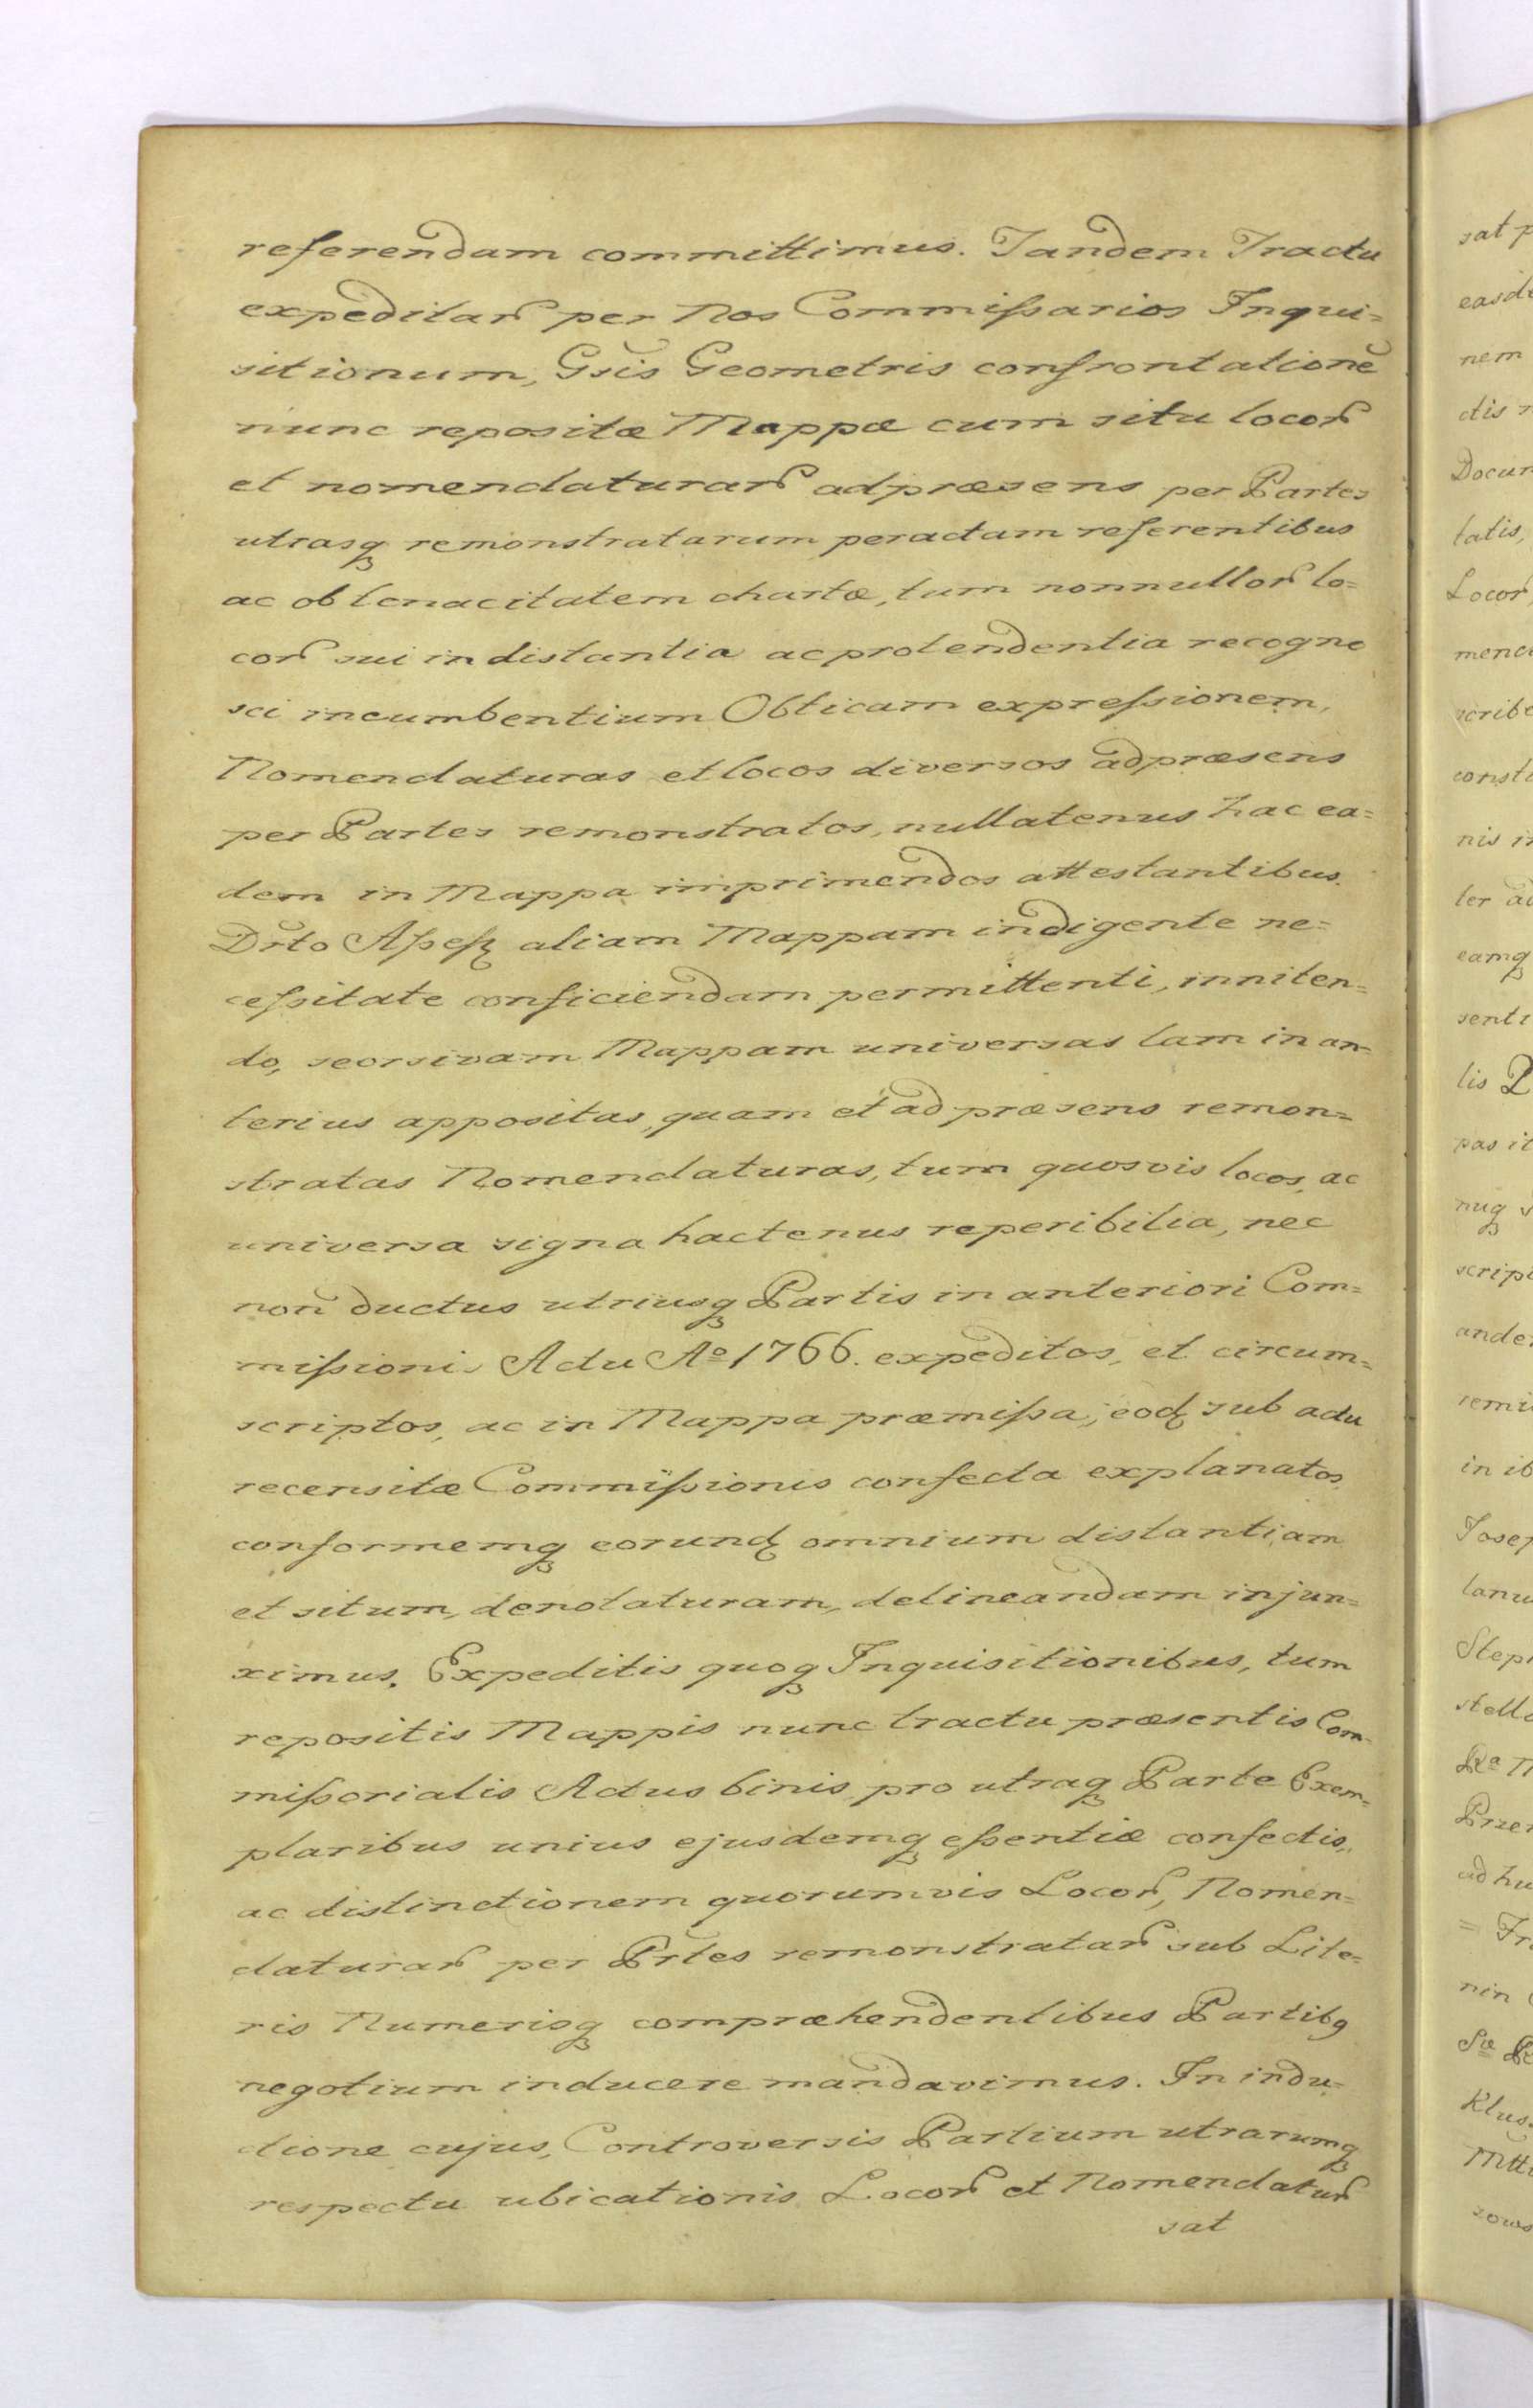 referendam committimus. Tandem Tractu
expeditarꝝ per Nos Commiſsarios Inqui=
sitionum, Gsis Geometris confrontationē
nunc repositæ Mappæ cum situ locorꝝ
et nomenclaturarꝝ adpræsens per Partes
utrasqꝫ remonstratarum peractam referentibus
ac ob tenacitatem chartæ, tum nonnullorꝝ lo=
corꝝ sui in distantia ac protendentia recogno
sci incumbentium Obticam expreſsionem,
Nomenclaturas et locos diversos adpræsens
per Partes remonstratos, nullatenus hac ea=
dem in Mappa imprimendos attestantibus.
Drto Aſseſꝫ aliam Mappam indigente ne=
ceſsitate conficiendam permittenti, inniten=
do, seorsivam Mappam universas tam in an=
terius appositas, quam et ad præsens remon=
stratas Nomenclaturas, tum quosvis locos, ac
universa signa hactenus reperibilia, nec
non ductus utriusqꝫ Partis in anteriori Com=
miſsionis Actu Aº 1766. expeditos, et circum=
scriptos, ac in Mappa præmiſsa, eodꝫ sub actu
recensitæ Commiſsionis confecta explanatos,
conformemqꝫ eorundꝫ omnium distantiam
et situm, denotaturam, delineandam injun=
ximus. Expeditis quoqꝫ Inquisitionibus, tum
repositis Mappis nunc tractu præsentis Com=
miſsorialis Actus binis pro utraqꝫ Parte Exem=
plaribus unius ejusdemqꝫ eſsentiæ confectis,
ac distinctionem quorumvis Locorꝝ, Nomen=
claturarꝝ per Prtes remonstratarꝝ sub Lite=
ris Numerisqꝫ compræhendentibus Partibꝰ
negotium inducere mandavimus. In indu=
ctione cujus, Controversis Partium utrarumqꝫ
respectu ubicationis Locorꝝ et Nomenclaturꝝ
sat
sat p
easd
nem
dis
Docum
tatis,
Locorꝝ
mencl
scribe
const
nis in
ter ad
eamqꝫ
senti
lis P
pas it
nuqꝫ s
script
ander
remi
in ib
Josep
lanu
Steph
stell
Przer
ad hu
= Fr
nin
Klus
Mtt
rows